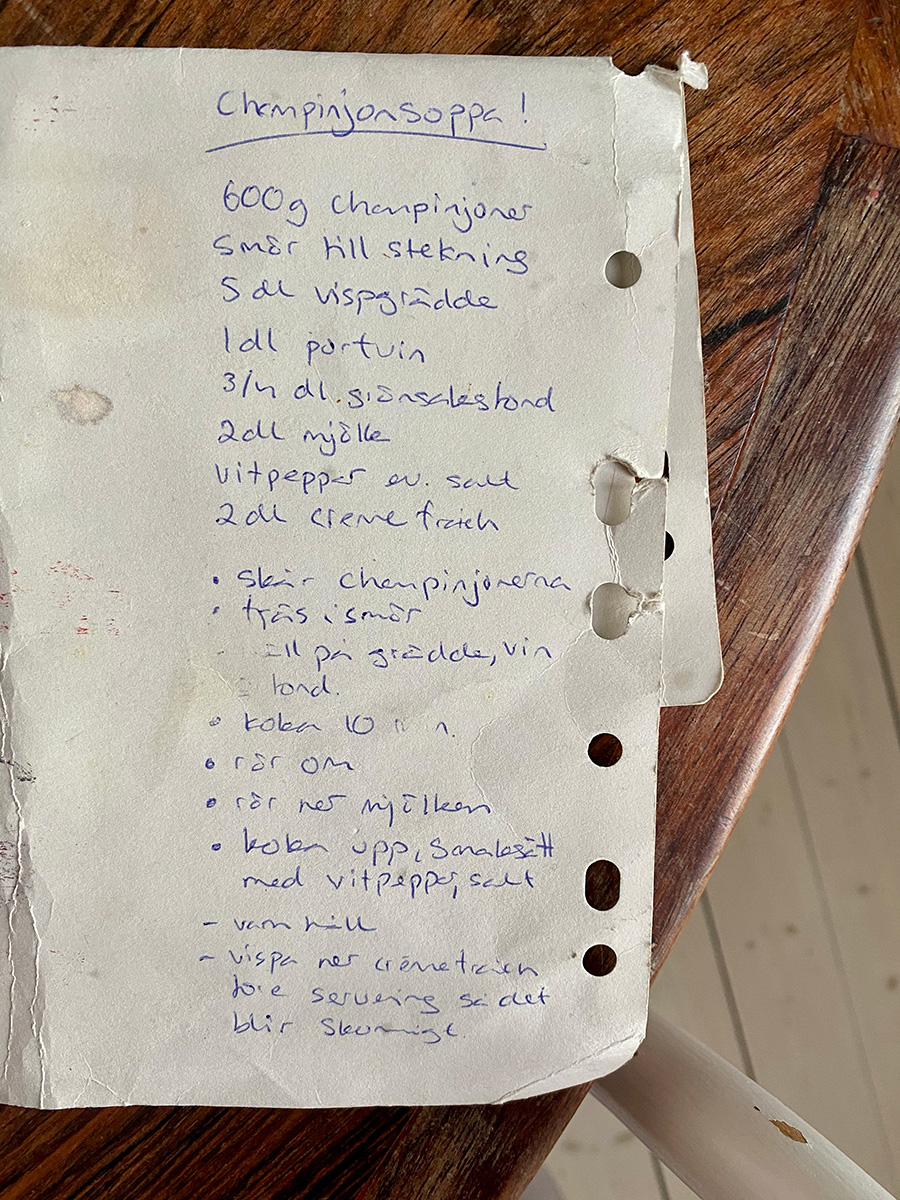 Champinjonsoppa!
600g champinjoner
Smör till stekning
5 dl vispgrädde
1 dl portvin
3/4 dl. grönsaksfond
2 dl mjölk
vitpeppar ev. salt
2 dl creme fraich
• Skär champinjonerna
• fräs i smör
äll på grädde, vin
fond.
• koka 10
• rör om
• rör ner mjölken
• koka upp, smaksätt
med vitpeppar, salt
- varmhåll
- vispa ner crèmefraich
före servering så det
blir skummigt.